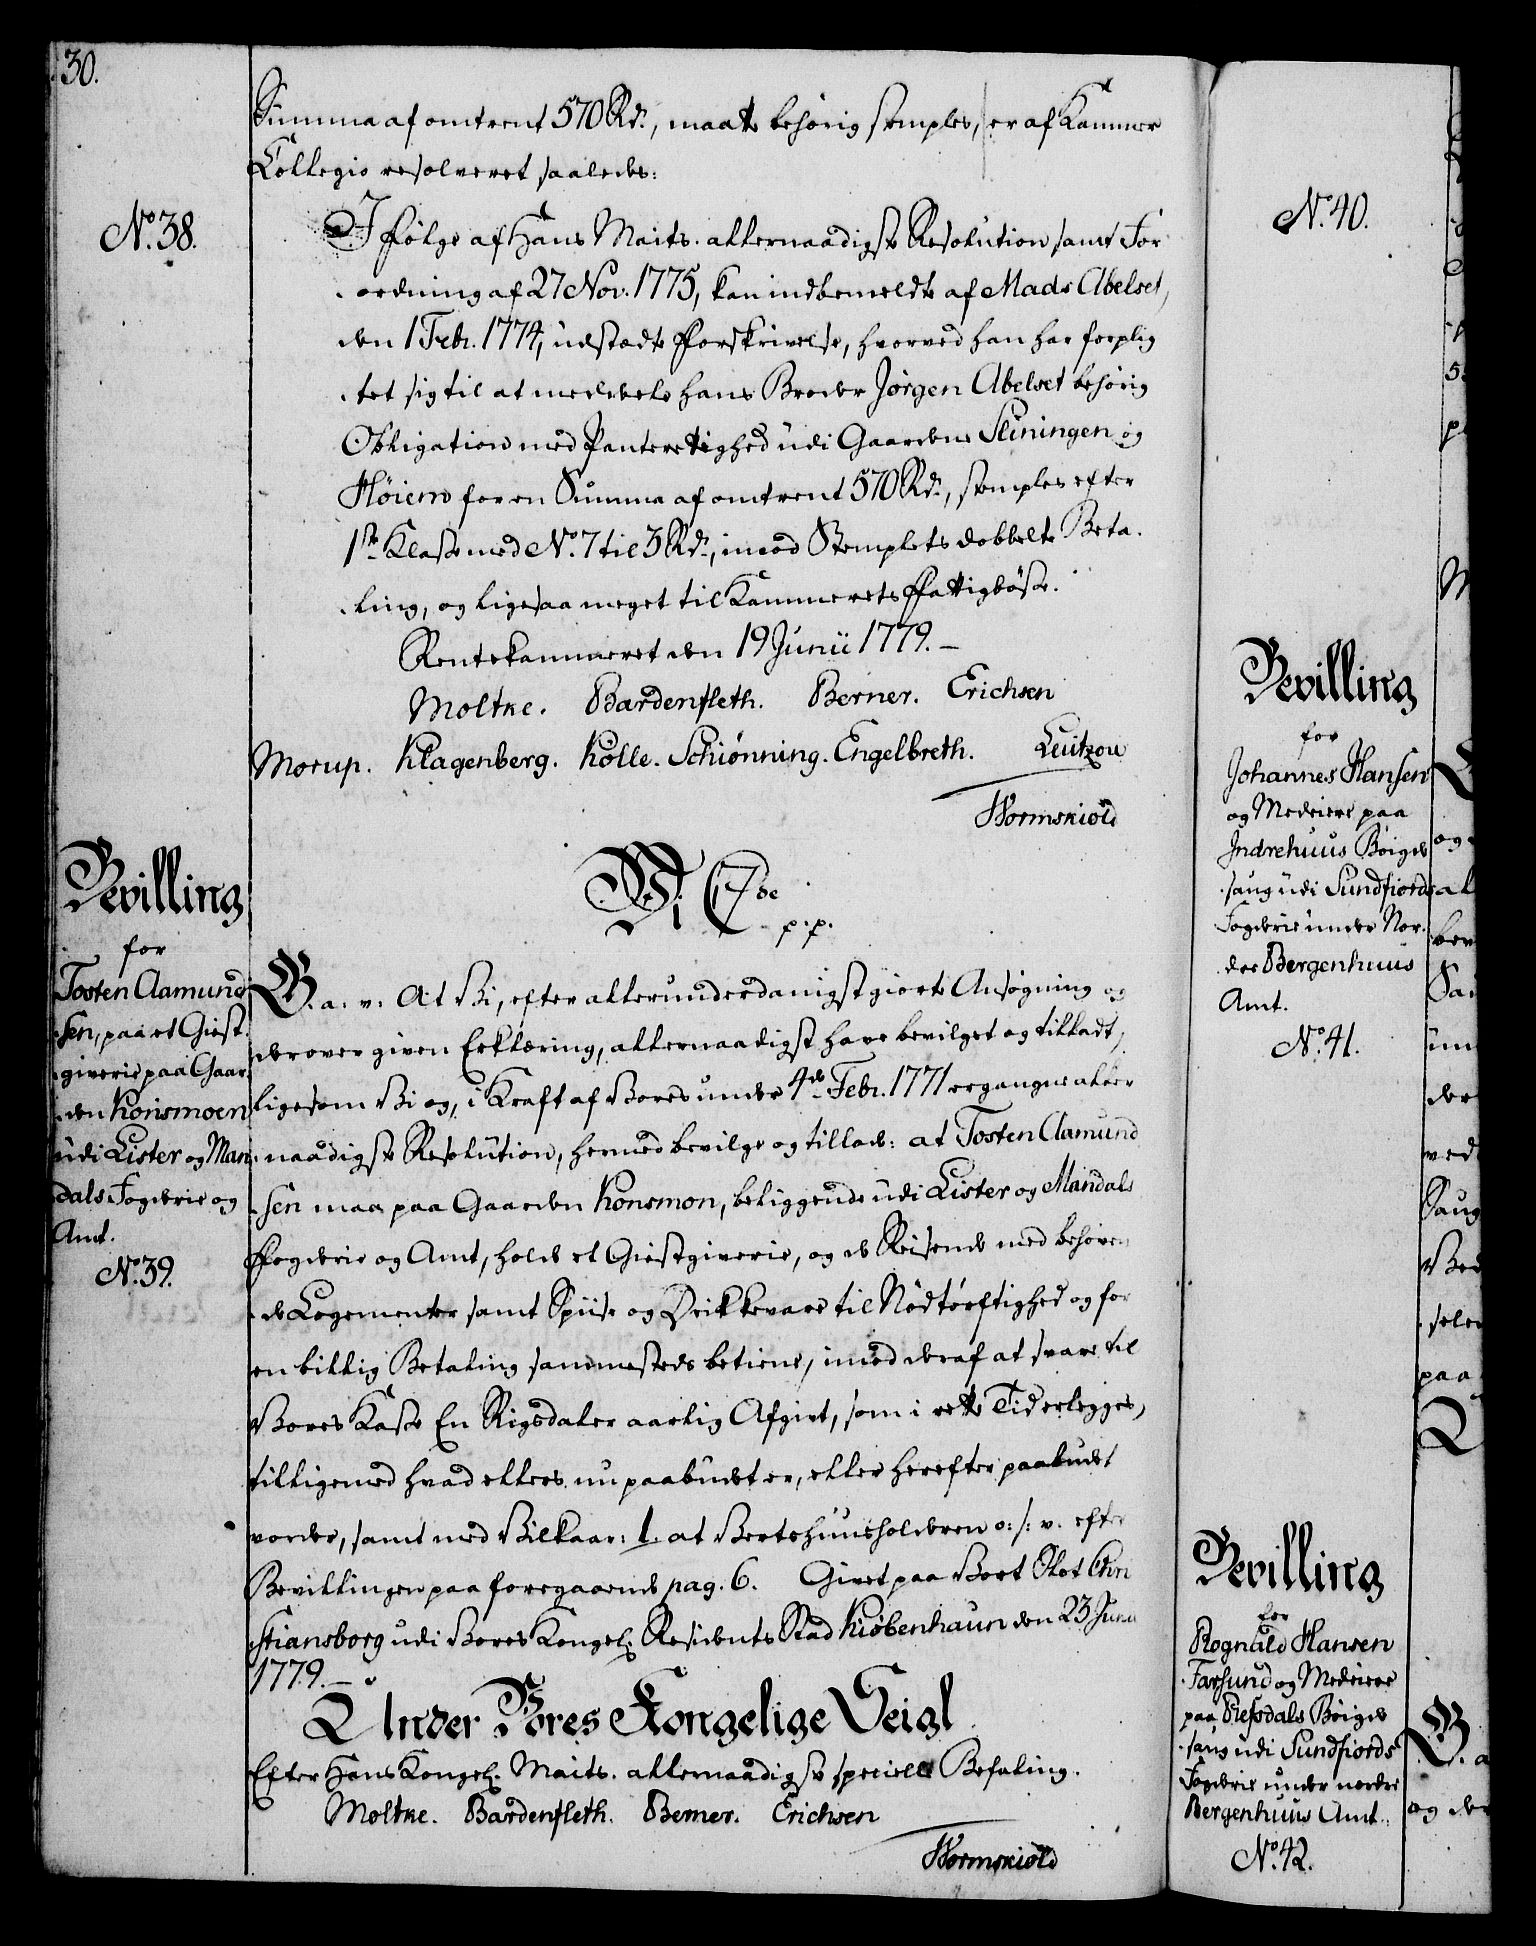 30.
Summa af omtrent 570 Rd., maatte behörig stemples, er af Kammer
Collegio resolveret saaledes:
No. 38.
I følge af Hans Maits. allernaadigste Resolution samt For
ordning af 27 Nov. 1775, kan indbemeldte af Mads Abelset,
den 1 Febr. 1774, udstædte Forskrivelse, hvorved han har forplig
tet sig til at meddeele hans Broder Jørgen Abelset behörig
Obligation med Panterettighed udi Gaardene Sleiningen og
Høiem for en Summa af omtrent 570 Rd., stemples efter
1ste Klasse med No. 7 til 3 Rd., imod Stemplets dobbelte Beta
ling, og ligesaa meget til Kammerets Fattigbösse.
Rentekammeret den 19 Junii 1779.
Moltke. Bardenfleth. Berner. Erichsen
Morup. Klagenberg. Kölle. Schiønning. Engelbreth. Lützou
Wormskiöld
Vi C 7de
p. p.
Bevilling
for
Tosten Aamund
sen, paa et Giest
giverie paa Gaar
den Konsmoen
udi Lister og Man
dals Fogderie og
Amt.
No. 39.
G. a. v: At Vi, efter allerunderdanigst giorte Ansøgning og
derover given Erklæring, allernaadigst have bevilget og tilladt,
ligesom Vi og, i Kraft af Vores under 4de Febr. 1771 ergangne aller
naadigste Resolution, hermed bevilge og tillade: at Tosten Aamund
sen maa paa Gaarden Konsmon, beliggende udi Lister og Mandals
Fogderie og Amt, holde et Giestgiverie, og de Reisende med behøven
de Logementer samt Spiise og Drikkevare til Nödtörftighed og for
en billig Betaling sammesteds betiene, imod deraf at svare til
Vores Kasse En Rigsdaler aarlig Afgivt, som i rette Tid erlegges,
tilligemed hvad ellers nu paabudet er, eller herefter paabudet
vorder, samt med Vilkaar: 1. at Vertshuusholderen o: s: v. efter
Bevillingen paa foregaaende pag. 6. Givet paa Vort Slot Chri
stiansborg udi Vores Kongel. Residents Stad Kiøbenhaun den 23 Junii
1779.
Under Vores Kongelige Seigl
Efter Hans Kongel. Maits. allernaadigste specielle Befaling.
Moltke. Bardenfleth. Berner. Erichsen
Wormskiöld
No. 40.
Bevilling
for
Johannes Hansen
og Medeiere paa
Indrehuus Böigde
saug udi Sundfiords
Fogderie under Nor
dre Bergenhuus
Amt.
No. 41.
Bevilling
for
Rognald Hansen
Farsund og Medeiere
paa Refsdals Böigde
saug udi Sundfiords
Fogderie under nordre
Bergenhuus Amt.
No. 42.